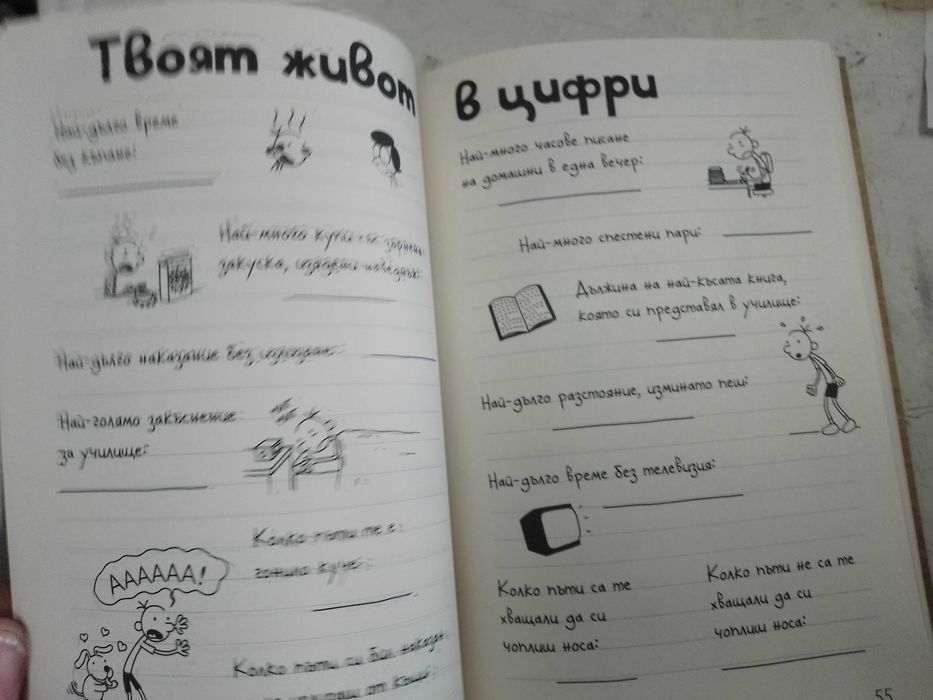 Твоят живот
Най-дълго време
без къпане:
Най-много купи със зърнена
закуска, изядени наведнъж:
Най-дълго наказание без излизане:
Най-голямо закъснение
за училище:
Колко пъти те е
гонило куче:
АААААА!
Колко пъти си бил наказан
от
в цифри
Най-много часове писане
на домашни в една вечер:
Най-много спестени пари:
Дължина на най-късата книга,
която си представял в училище:
Най-дълго разстояние, изминато пеш:
Най-дълго време без телевизия:
Колко пъти са те
хващали да си
чоплиш носа:
Колко пъти не са те
хващали да си
чоплиш носа:
55